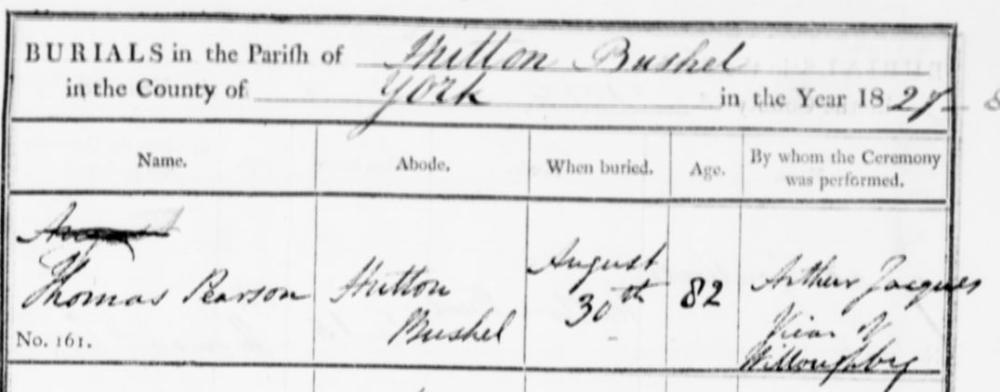 BURIALS in the Pariſh of Hutton Bushel
in the County of York in the Year 1827
Name. Abode. When buried. Age. By whom the Ceremony was performed.
August
Thomas Pearson
No. 161.
Hutton
Bushel
August
30th
82
Arthur Jacques
Vicar of
Willoughby